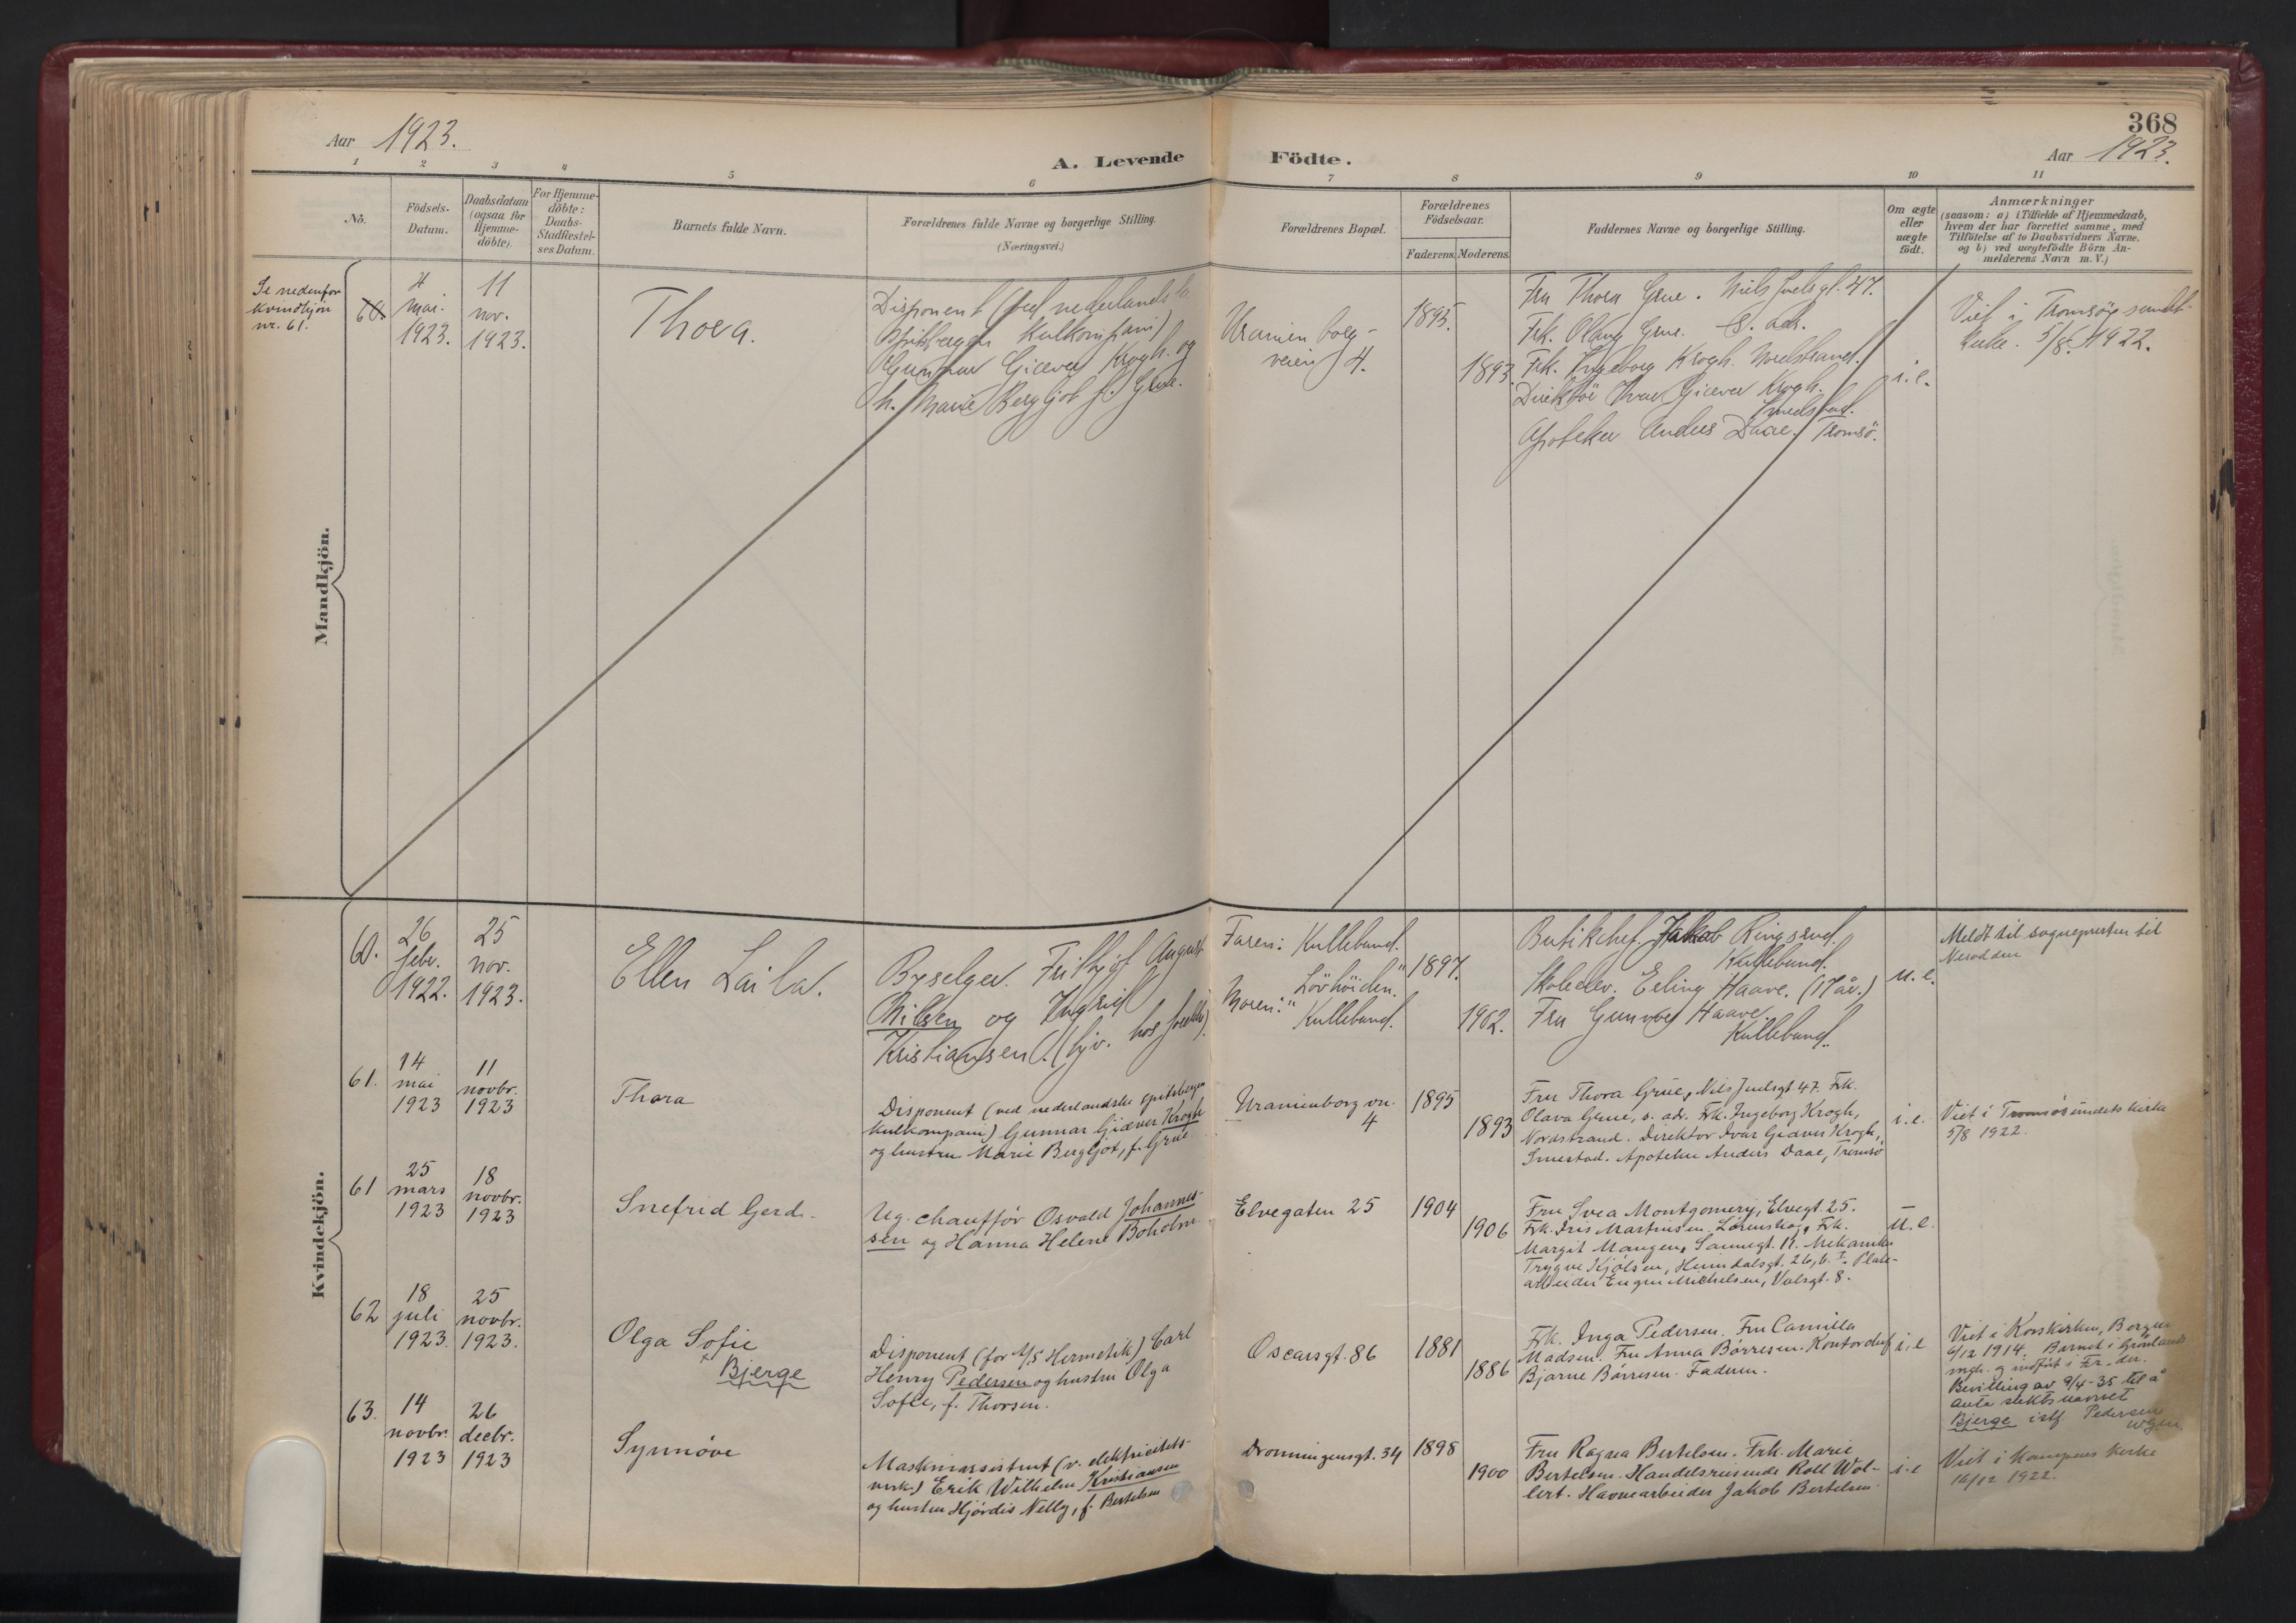 368
Aar 1923.
Aar 1923.
A. Levende Födte.
1 2 3 4 5 6 7 8 9 10 11
No.
Födsels-
Datum.
Daabsdatum
(ogsaa for
Hjemme-
döbte).
For Hjemme-
döbte:
Daabs-
Stadfæstel-
ses Datum.
Barnets fulde Navn.
Forældrenes fulde Navne og borgerlige Stilling.
(Næringsvei.)
Forældrenes Bopæl.
Forældrenes
Födselsaar.
Faderens. Moderens.
Faddernes Navne og borgerlige Stilling.
Om ægte
eller
uægte
født.
Anmærkninger
(saasom: a) i Tilfælde af Hjemmedaab,
hvem der har forrettet samme, med
Tilföielse af to Daabsvidners Navne.
og b) ved uægtefödte Börn An-
melderens Navn m. V.)
Mandkjön.
Se nedenfor
kvindkjön
nr. 61.
60.
4
mai.
1923.
11
nov.
1923.
Thora.
Disponent (ved nederlandske
Spitsbergen Kulkompani)
Gunnar Giæver Krogh og
h. Marie Bergljot f. Grue.
Uranienborg-
veien 4.
1895.
1893.
Fru Thora Grue. Niels Juelsgt. 47.
Frk. Olava Grue. s. adr.
Frk. Ingeborg Krogh. Nordstrand.
Direktör Ivar Giæver Krogh.
Smedstad.
Apoteker Anders Daae. Tromsö.
i.e.
Viet i Tromsøsundets
kirke. 5/8 1922.
Kvindekjön.
60.
26
febr.
1922.
25
nov.
1923.
Ellen Laila.
Byselger. Frithjof August
Nilsen og Ingrid
Kristiansen. (hjv. hos foreldr.)
Faren: Kullebund.
Lövhöiden.
Moren: "
Kullebund.
1897.
1902.
Butikchef Jakob Ringsrud.
Kullebund.
Skoleelev. Erling Haave. (17 år.)
Fru Gunvor Haave.
Kullebund.
u.e.
Meldt til sognepresten til
Nesodden
61.
14
mai
1923
11
novbr.
1923
Thora
Disponent (ved nederlandske spitsbergen
kulkompani) Gunnar Giæver Krogh
og hustru Marie Bergljot, f. Grue
Uranienborg vn.
4
1895
1893
Fru Thora Grue, Nils Juelsgt. 47. Frk.
Olava Grue, s. adr. Frk. Ingeborg Krogh,
Nordstrand. Direktør Ivar Giæver Krogh,
Smestad. Apoteker Anders Daae, Tromsø
i.e.
Viet i Tromsøsundets kirke
5/8 1922.
61
25
mars
1923
18
novbr.
1923
Snefrid Gerd.
Ug. chauffør Osvald Johannes-
sen og Hanna Helene Boholm
Elvegaten 25
1904
1906
Fru Svea Montgomery, Elvegt. 25.
Frk. Iris Martinsen, Lørenskog, Frk.
Margit Mangen, Sannergt. 11. Mekaniker
Trygve Kjølsen, Heimdalsgt. 26, b. I. Plate-
arbeider Eugen Michelsen, Valsgt. 8.
u.e.
62
18
juli
1923.
25
novbr.
1923.
Olga Sofie
× Bjerge
Disponent (for A/S Hermetik) Carl
Henry Pedersen og hustru Olga
Sofie, f. Thorsen.
Oscarsgt. 86
1881
1886
Frk. Inga Pedersen. Fru Camilla
Madsen. Fru Anna Børresen. Kontorchef
Bjarne Børresen. Faderen.
i.e
Viet i Korskirken, Bergen
6/12 1914. Barnet i Grønlands
mgh. og indført i Fr. der.
Bevilling av 9/4-35 til å
anta slektsnavnet
Bjerge istf. Pedersen
63.
14
novbr.
1923
26
decbr.
1923
Synnøve
Maskinassistent (v. elektricitets-
verk.) Erik Wilhelm Kristiansen
og hustru Hjördis Nelly, f. Bertelsen
Dronningensgt. 34
1898
1900
Fru Ragna Bertelsen. Frk. Marie
Bertelsen. Handelsreisende Rolf Wol-
lert. Havnearbeider Jakob Bertelsen.
i.e
Viet i Kampens kirke
16/12 1922.